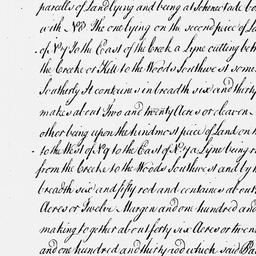 parcells of Land lying and being at Schinectade bo
with No 8 The one lying on the second piece of La
of No 7 to the East of the Creek a Lyne cutting betw
the Creeke or Kill to the Woods Southwest some
Southerly It containes in breadth six and thirty
makes about Two and twenty Acres or eleaven
other being upon the hindmost piece of Land on h
to the West of No 9 to the East of No 7 a Lyne being r
from the Creeke to the Woods Southwest and by h
breadth six and fifty rod and containes about
Acres or Twelve Margen and one hundred and
making together about forty six Acres or twen
and one hundred and thirty rod which said Par